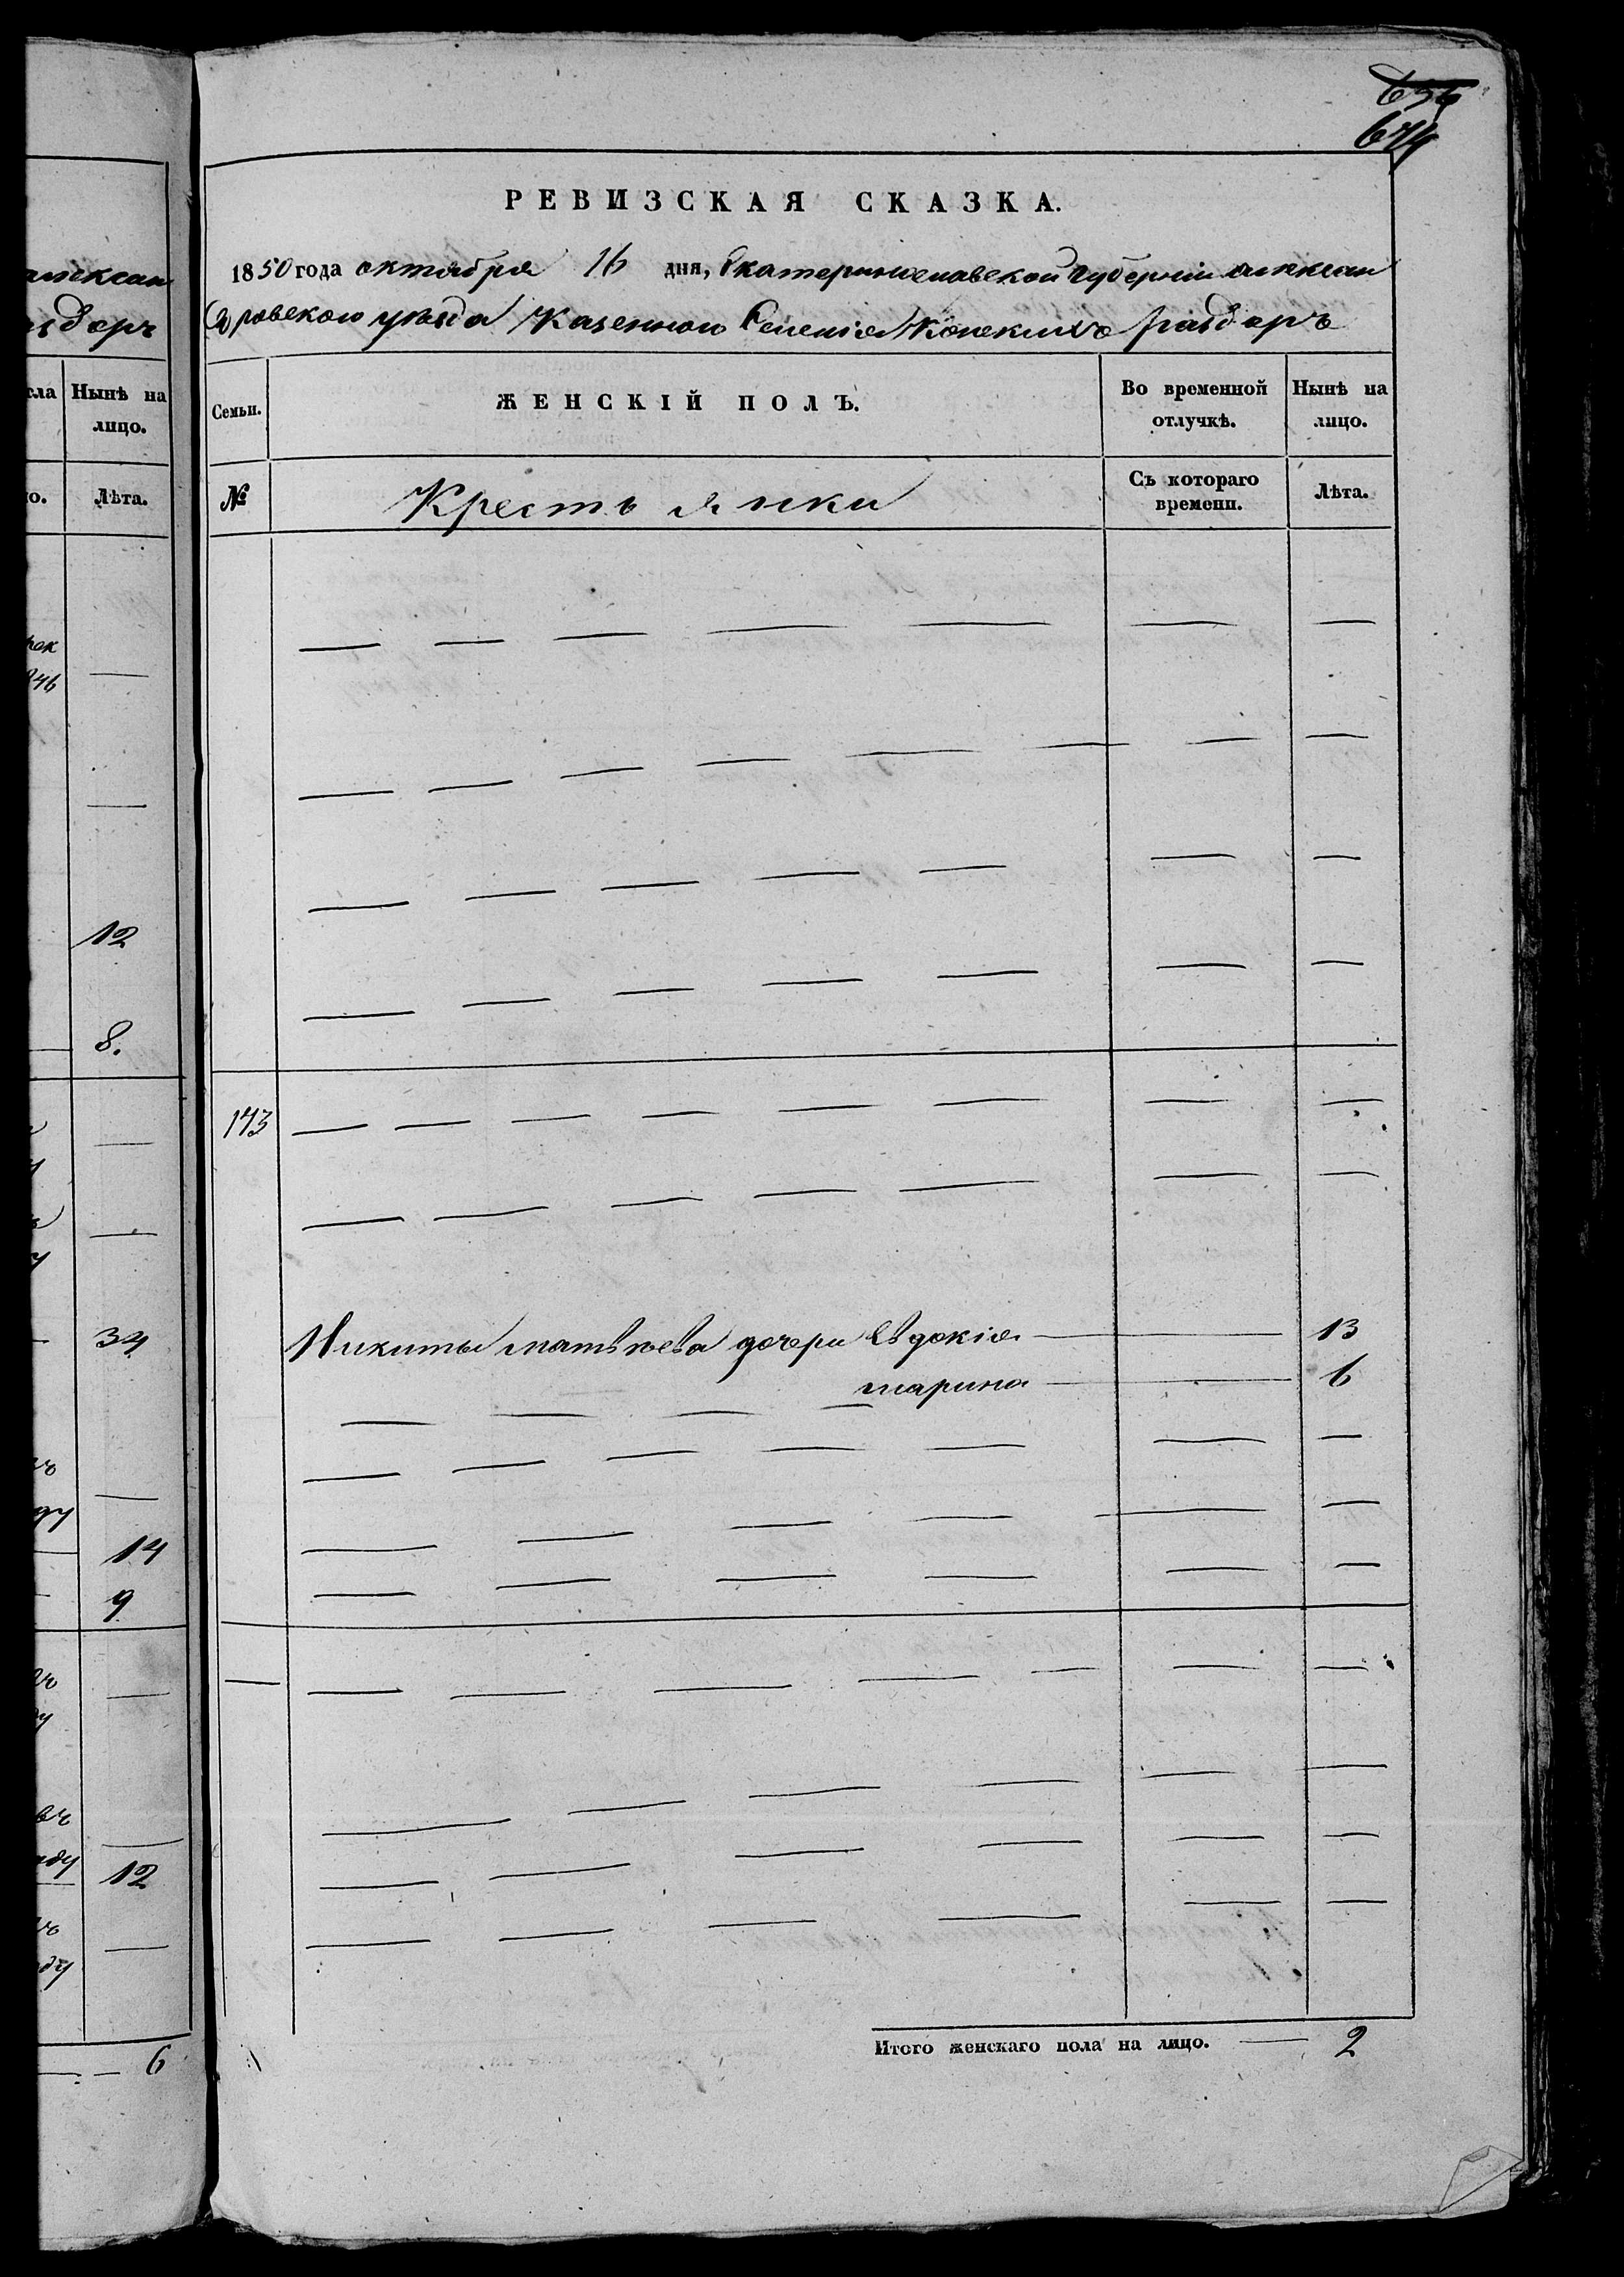 656
674
РЕВИЗСКАЯ СКАЗКА.
1850 года октября 16 дня, Екатеринославской Губерніи алексан
дровскаго уѣзда Казеннаго Селенія Конскихъ раздоръ
Семьи.
ЖЕНСКІЙ ПОЛЪ.
Во временной отлучкѣ.
Нынѣ на лицо.
№
Крестьянки
Съ котораго времени.
Лѣта.
143
Никиты матвѣева дочери Евдокія — 13
марина — 6
Итого женскаго пола на лицо. — 2
алексан
здоръ
сла
Нынѣ на
лицо.
ло.
Лѣта.
рек
846
12
8.
34
ду
14
9
аду
12
оду
6